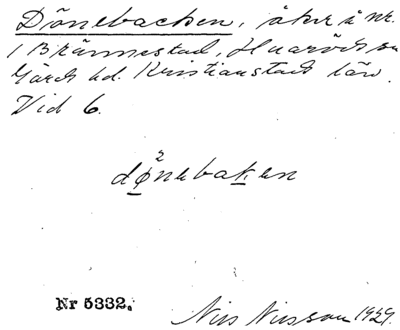 Dönebacken, åker å nr.
1 Brännestad, Huaröds sn
Gärds hd. Kristianstads län.
Vid 6.
dønebaken
Nr 5332.
Nils Nilsson 1929.